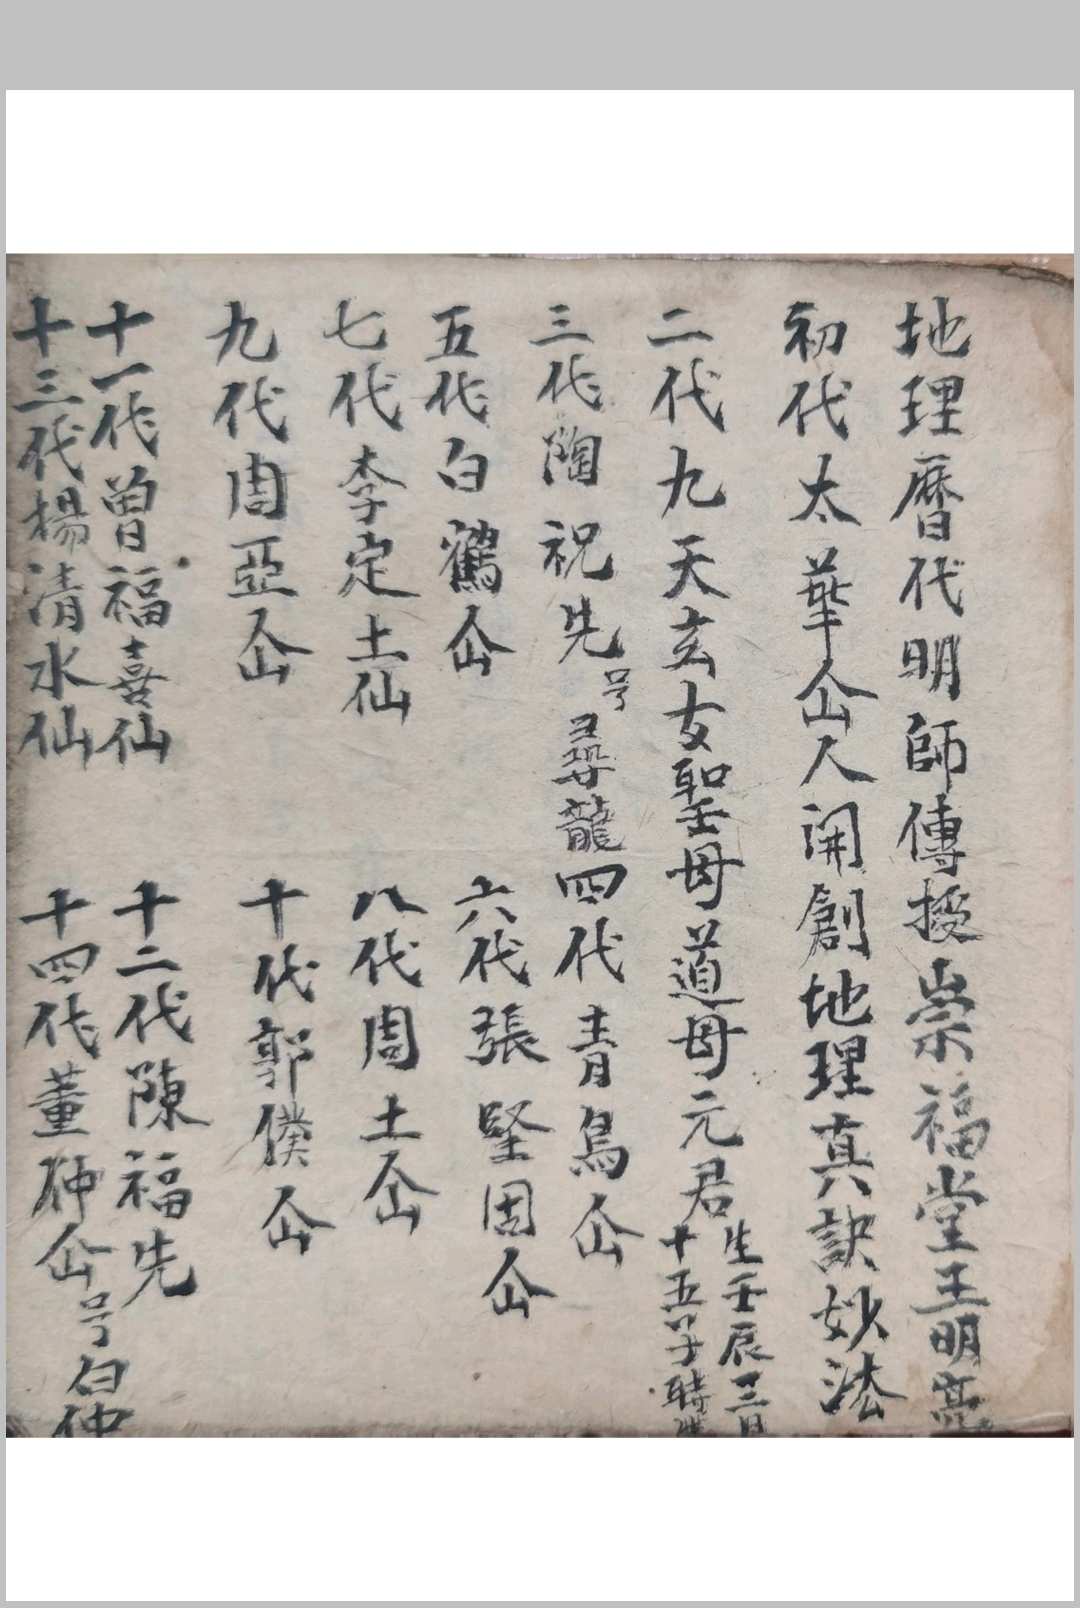 地理曆代明師傳授崇福堂王明亮
初代太華仚人開創地理真訣妙法
二代九天玄女聖母道母元君生壬辰三日
十五子時
三代陶祝先号尋龍四代青鳥仚
五代白鶴仚 六代張堅固仚
七代李定土仙 八代周土仚
九代周亞仚 十代郭僕仚
十一代曽福喜仙 十二代陳福先
十三代楊清水仙 十四代董仲仚号白仲